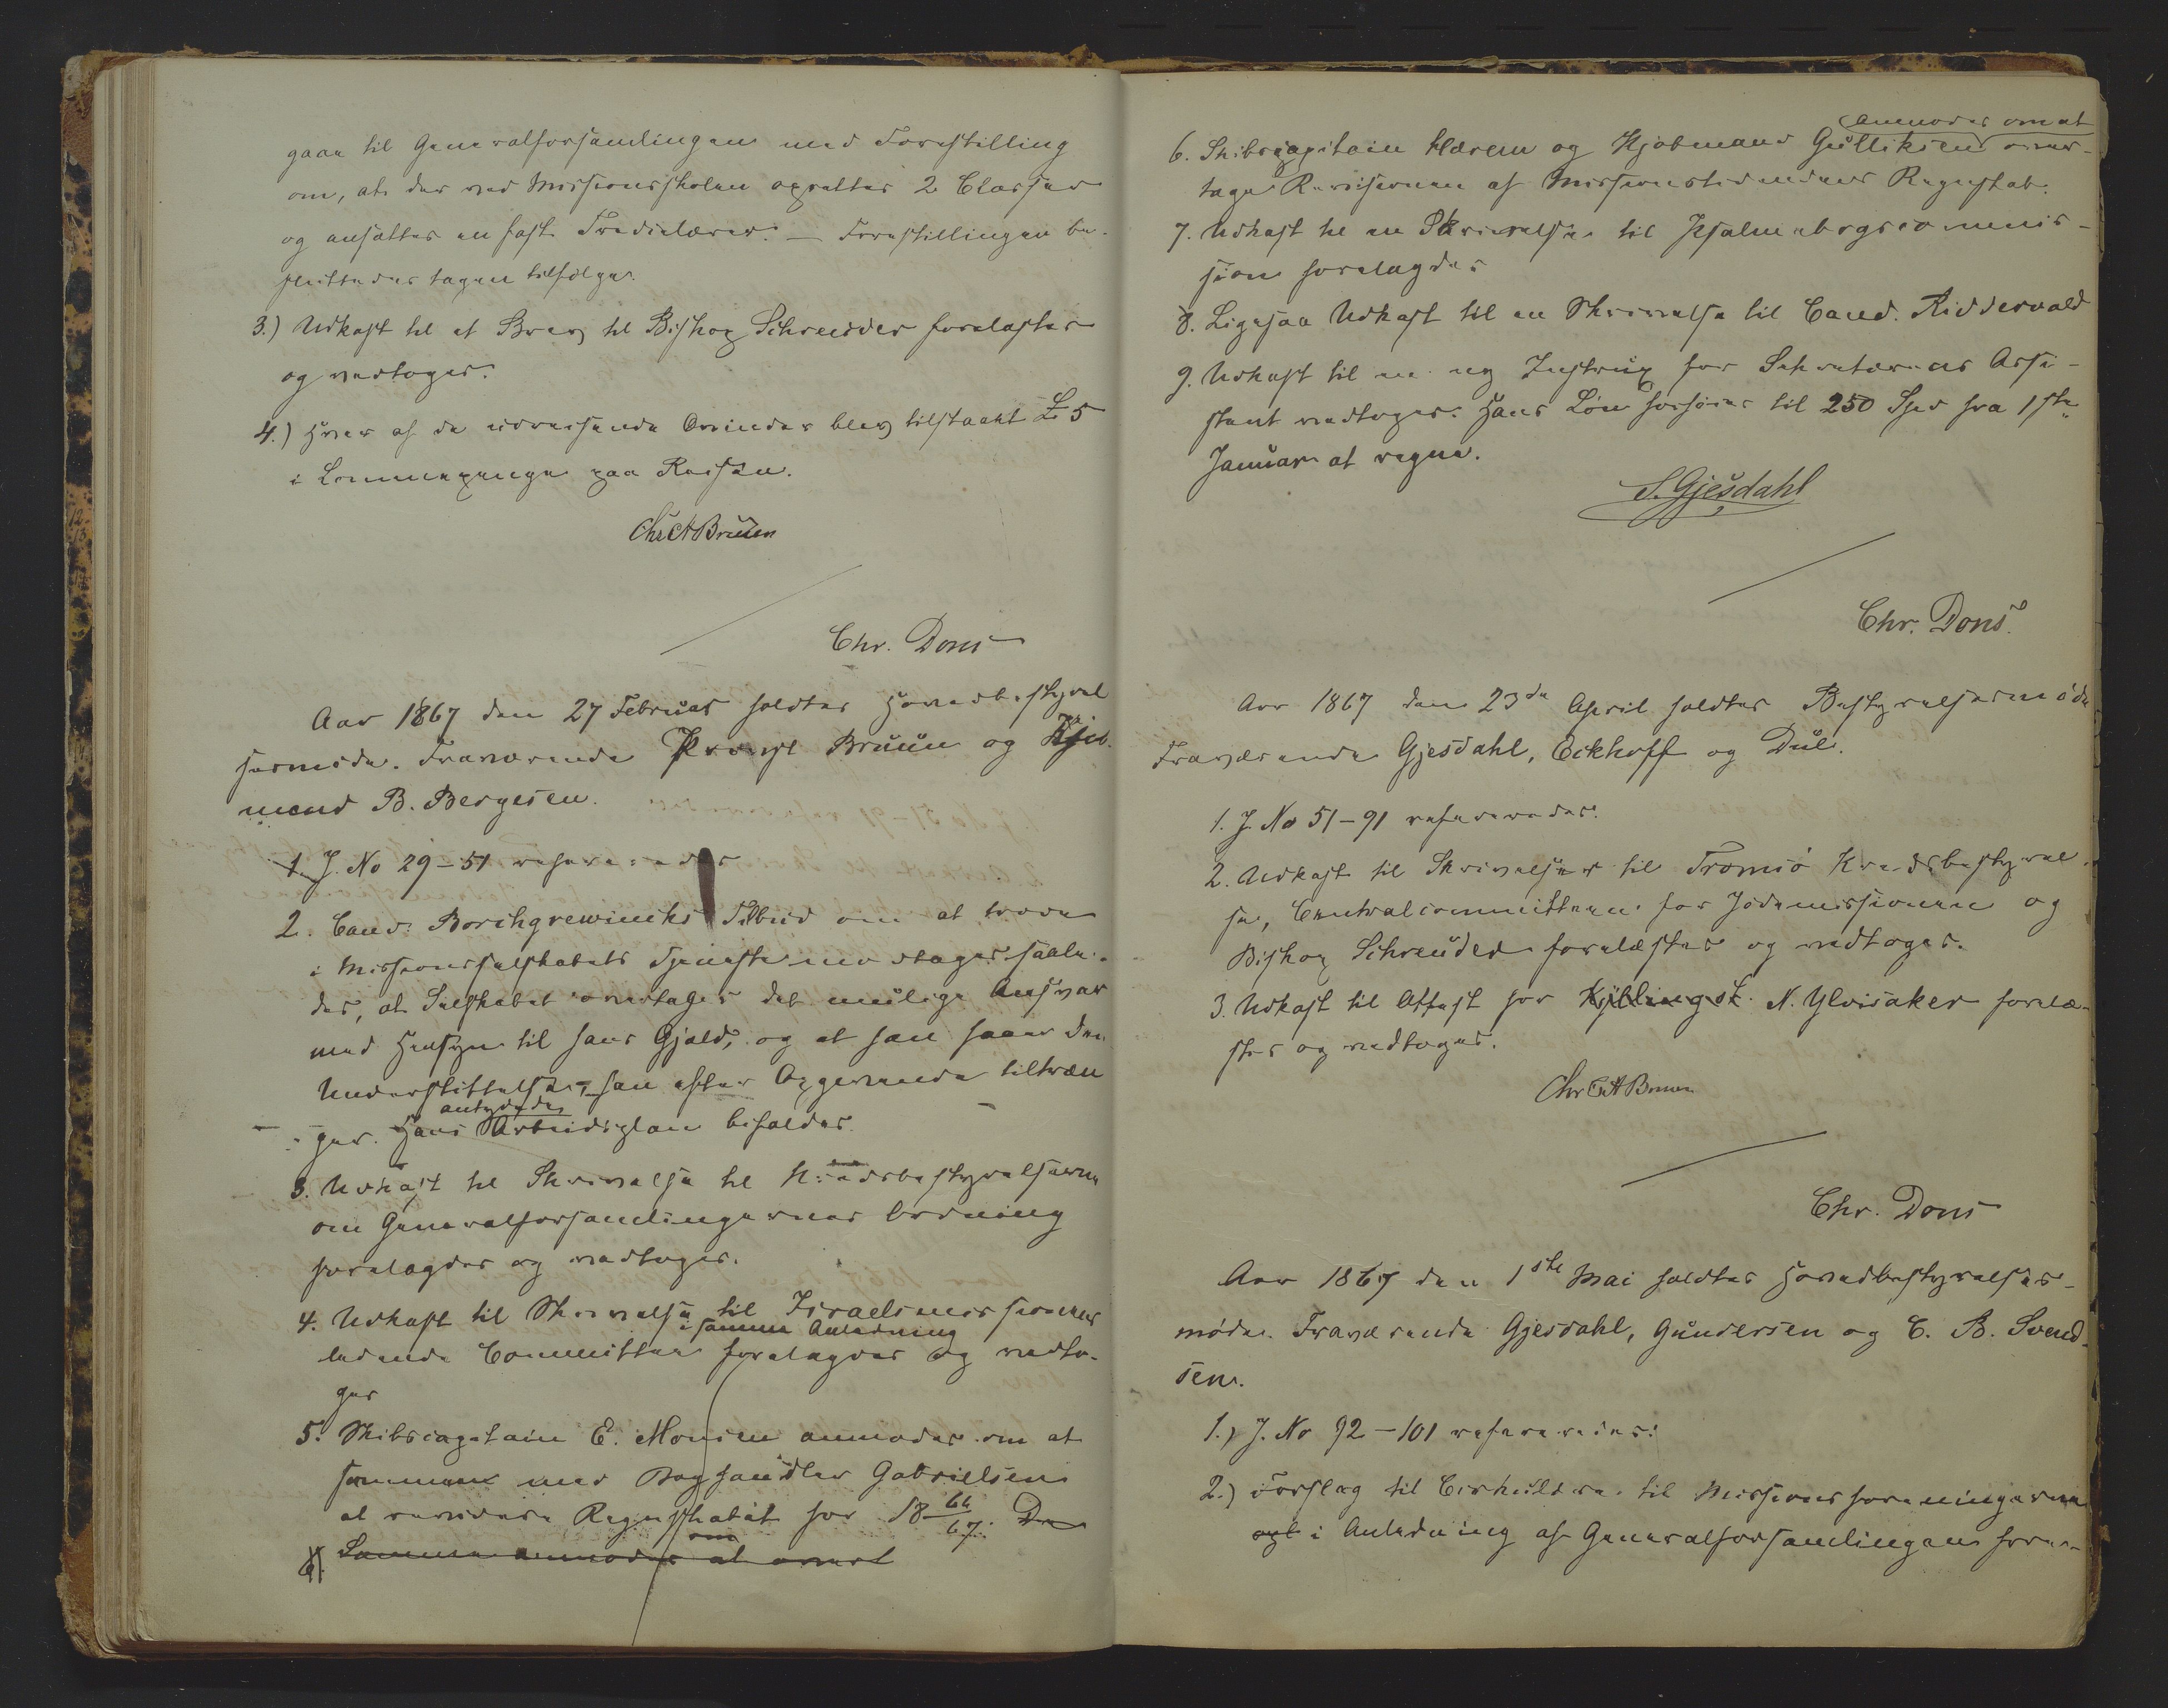 gaae til Generalforsamlingen med Forestilling
om, at der ved Missionsskolen oprettes 2 Classer
og ansættes en fast Tredielærer. — Forestillingen be-
sluttedes tagen tilfølge.
3.) Udkast til et Brev til Biskop Schreuder forelæstes
og vedtoges.
4.) Hver af de udreisende Qvinder blev tilstaaet £ 5
i Lommepenge paa Reisen.
Chr A Bruun
Chr. Dons
Aar 1867 den 27 Februar holdtes Hovedbestyrel
sesmøde. Fraværende Provst Bruun og Kjøb.
mand B. Bergesen.
1. J. No 29-51 refereredes
2. Cand. Borchgrewincks Tilbud om at træde
i Missionsselskabets Tjeneste modtages saale-
des, at Selskabet overtager det mulige Ansvar
med Hensyn til hans Gjæld, og at han faaer den
Understøttelse, han efter Opgivende tiltræn
ger. Hans antydede Arbeidsplan bifaldes.
3. Udkast til Skrivelse til Kredsbestyrelserne
om Generalforsamlingernes Ordning
forelagdes og vedtoges.
4. Udkast til Skrivelse til Israelsmissionens
i samme Anledning
ledende Committee forelagdes og vedto-
ges
5. Skibscapitain E. Monsen anmodes om at
sammen med Boghandler Gabrielsen
at revidere Regnskabet for 18 66/67. De
om
6. Samme anmodes at overt
anmodes om at
6. Skibscapitain Hærem og Kjøbmand Gulliksen over-
tage Revisionen af Missionstidendens Regnskab.
7. Udkast til en Skrivelse til Psalmebogscommis-
sion forelagdes
8. Ligesaa Udkast til en Skrivelse til Cand. Riddervold
9. Udkast til en ny Instrux for Sekretærens Assi-
stent vedtoges. Hans Løn forhøies til 250 Spd fra 1ste
Januar at regne.
S. Gjesdahl
Chr. Dons
Aar 1867 den 23de April holdtes Bestyrelsesmøde
Fraværende Gjesdahl, Eckhoff og Due.
1. J. No 51-91 refereredes.
2. Udkast til Skrivelser til Tromsø Kredsbestyrel
se, Centralcommitteen for Jødemissionen og
Biskop Schreuder forelæstes og vedtoges.
3. Udkast til Attest for Kyllingst. N. Ylvisaker forelæ-
stes og vedtoges.
Chr A Bruun
Chr. Dons
Aar 1867 den 1ste Mai holdtes Hovedbestyrelses-
møde. Fraværende Gjesdahl, Gundersen og C. B. Svend-
sen.
1.) J. No 92-101 refereredes.
2.) Forslag til Cirkulære til Missionsforeningerne
i Anledning af Generalforsamlingen fore-